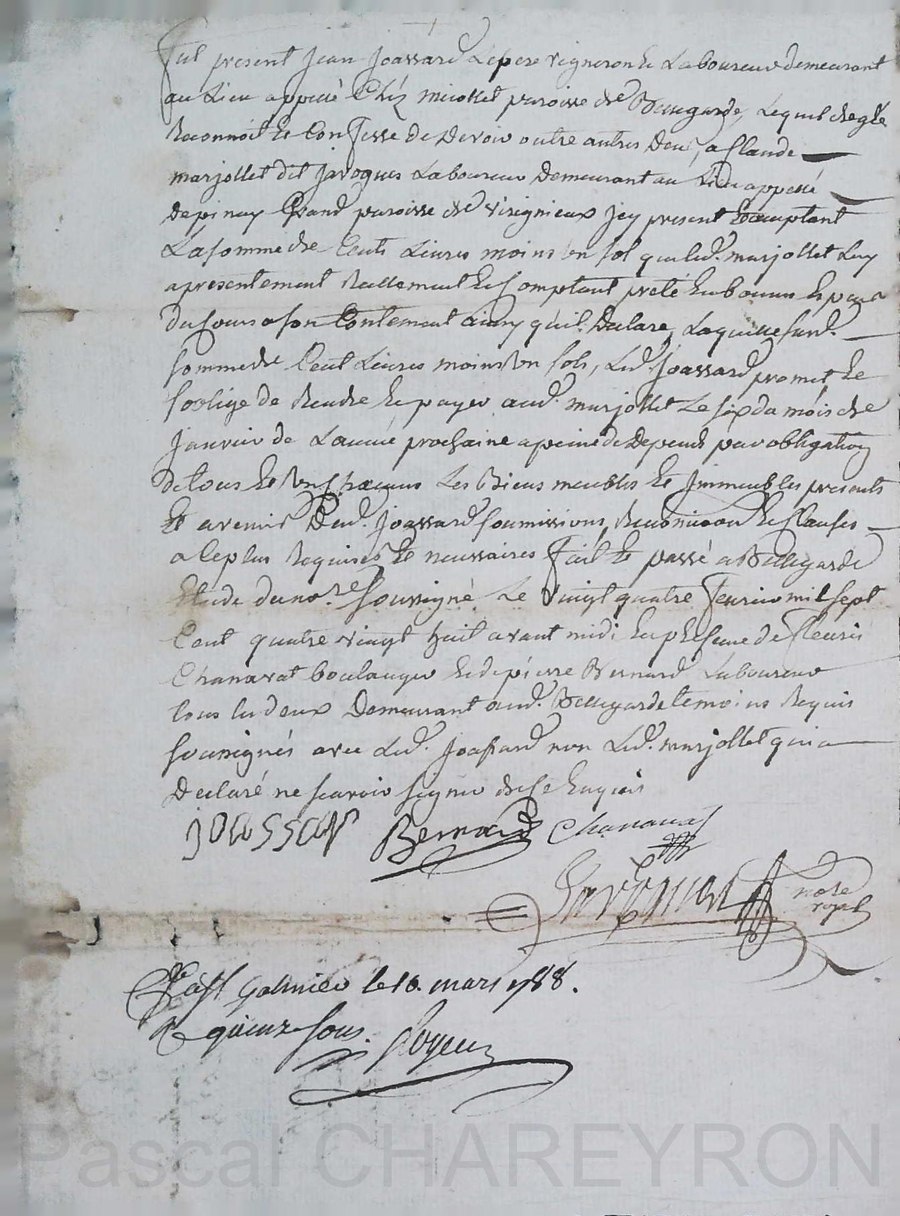 Fut present Jean Joassard Le pere vigneron et Laboureur demeurant
au Lieu appellé Chéz micollet paroisse de Bellegarde, Lequel de gré
Reconnoit et Confesse de Devoir outre autres Deu, a Claude
marjollet dit javogues Laboureur Demeurant au Lieu appellé
Depinay Grand paroisse de virignieux jcy present acceptant
La somme de Cents Livres moins un sol que led. marjollet Luy
a presentement Reellement et Comptant preté en bonnes Especes
du Cours a son Contentement ainsy qu'il Declare, Laquelle susd.
somme de Cent Livres moins un sols, Led. Joassard promet et
soblige de Rendre et payer aud. marjollet Le six du mois de
janvier de Lannée prochaine a peine de Depens par obligation
de tous et un Chacuns Les Biens meubles et Immeubles presents
et avenir Dud. Joassard soumissions, Renonciaon et Clauses
a ce plus Requises et necessaires fait et passé a Bellegarde
Etude du no.re soussigné Le Vingt quatre fevrier mil sept
Cent quatre vingt huit avant midi En presence de fleuris
Chanavat boulanger et de pierre Bernard Laboureur
tous les deux Demeurant aud. Bellegarde temoins Requis
soussignés avec Led. Joassard non Led. marjollet qui a
Declaré ne scavoir signer de ce Enquis
joassar Bernard Chanavat
no.re
royal
Cllé a st Galmier le 18. mars 1788.
R quinze sous. Royeux
Pascal CHAREYRON